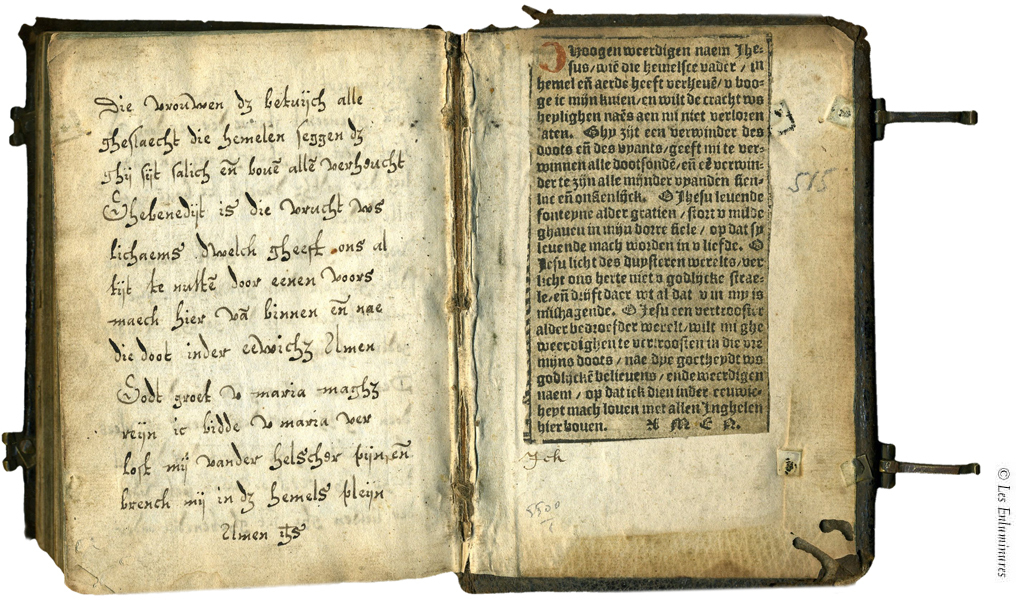 Die vrouwen dz betuijch alle
gheslaecht die hemelen seggen dz
ghij sijt salich eñ bouẽ allẽ verhoucht
Ghebenedijt is die vrucht vvs
lichaems dwelck gheeft ons al
tijt te nuttẽ door eenen voors
maech hier vã binnen eñ nae
die doot inder eewich3 Amen
Godt groet v maria magh3
reijn ic bidde v maria ver
lost mij vander helscher pijn, eñ
brench mij in dz hemels pleijn
Amen ihs
O Hoogen weerdigen naem Jhe-
sus/wiẽ die hemelsce vader/in
hemel eñ aerde heeft verheuẽ/v boo-
ge ic mijn knien/en wilt de cracht ws
heylighen naẽs aen mi niet verloren
laten. Ghy zijt een verwinder des
doots eñ des vyants/geeft mi te ver-
winnen alle dootsondẽ/eñ eẽ verwin-
der te zijn alle mijnder vyanden sien-
lijc eñ onsienlijck. O Jhesu leuende
fonteyne alder gratien/stort v milde
ghauen in mijn dorre siele/op dat sy
leuende mach worden in v liefde. O
Jesu licht des duysteren werelts/ver
licht ons herte met v godlijcke strae-
le/eñ drijft daer wt al dat v in my is
mishagende. O Jesu een vertrooster
alder bedroefder werelt/wilt mi ghe
weerdighen te vertroosten in die vre
mijns doots/nae dye goetheydt ws
godlijckẽ believens/ende weerdigen
naem/op dat ick dien inder eeuwic-
heyt mach louen met allen Jnghelen
hier bouen. A M E N.
Jck
515
5500
© Les Enluminures